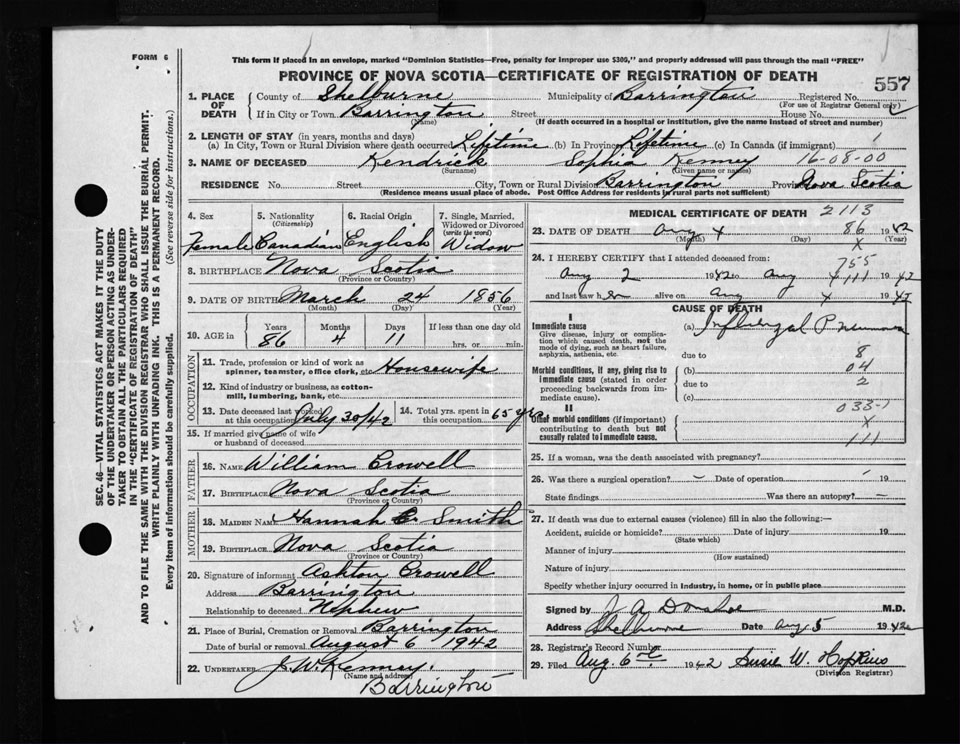 FORM 6
This form if placed in an envelope, marked "Dominion Statistics—Free, penalty for improper use $300," and properly addressed will pass through the mail "FREE"
PROVINCE OF NOVA SCOTIA—CERTIFICATE OF REGISTRATION OF DEATH
557
1. PLACE OF DEATH
County of Shelburne Municipality of Barrington Registered No.
(For use of Registrar General only)
If in City or Town Barrington Street House No.
(Name) (If death occurred in a hospital or institution, give the name instead of street and number)
2. LENGTH OF STAY (in years, months and days)
(a) In City, Town or Rural Division where death occurred Lifetime (b) In Province Lifetime (c) In Canada (if immigrant)
3. NAME OF DECEASED Kendrick Sophia Kenney 16-08-00
(Surname) (Given name or names)
RESIDENCE No. Street City, Town or Rural Division Barrington Province Nova Scotia
(Residence means usual place of abode. Post Office Address for residents in rural parts not sufficient)
SEC. 46—VITAL STATISTICS ACT MAKES IT THE DUTY
OF THE UNDERTAKER OR PERSON ACTING AS UNDER-
TAKER TO OBTAIN ALL THE PARTICULARS REQUIRED
IN THE "CERTIFICATE OF REGISTRATION OF DEATH"
AND TO FILE THE SAME WITH THE DIVISION REGISTRAR WHO SHALL ISSUE THE BURIAL PERMIT.
WRITE PLAINLY WITH UNFADING INK. THIS IS A PERMANENT RECORD.
Every item of information should be carefully supplied. (See reverse side for instructions.)
4. Sex 5. Nationality 6. Racial Origin 7. Single, Married,
(Citizenship) Widowed or Divorced
(write the word)
Female Canadian English Widow
8. BIRTHPLACE Nova Scotia
(Province or Country)
9. DATE OF BIRTH March 24 1856
(Month) (Day) (Year)
10. AGE in Years Months Days If less than one day old
86 4 11 hrs. or min.
OCCUPATION
11. Trade, profession or kind of work as
spinner, teamster, office clerk, etc. Housewife
12. Kind of industry or business, as cotton-
mill, lumbering, bank, etc.
13. Date deceased last worked
at this occupation July 30/42
14. Total yrs. spent in
this occupation 65 yrs
15. If married give name of wife
or husband of deceased
FATHER
16. NAME William Crowell
17. BIRTHPLACE Nova Scotia
(Province or Country)
MOTHER
18. MAIDEN NAME Hannah Smith
19. BIRTHPLACE Nova Scotia
(Province or Country)
20. Signature of informant Ashton Crowell
Address Barrington
Relationship to deceased Nephew
21. Place of Burial, Cremation or Removal Barrington
Date of burial or removal August 6 1942
22. UNDERTAKER J. W. Kenney.
(Name and address)
Barrington
MEDICAL CERTIFICATE OF DEATH 2113
23. DATE OF DEATH Aug 4 86 1942
(Month) (Day) X (Year)
24. I HEREBY CERTIFY that I attended deceased from:
755
Aug 2 1942 to Aug 4 111 1942
and last saw her alive on Aug 4 1942
CAUSE OF DEATH
I
Immediate cause (a) Influenzal Pneumonia
Give disease, injury or complica-
tion which caused death, not the
mode of dying, such as heart failure,
asphyxia, asthenia, etc.
due to 8
Morbid conditions, if any, giving rise to
immediate cause (stated in order
proceeding backwards from im-
mediate cause).
(b) 04
due to 2
(c)
II 033-1
Other morbid conditions (if important)
contributing to death but not
causally related to immediate cause.
X
111
25. If a woman, was the death associated with pregnancy?
26. Was there a surgical operation? – Date of operation 19
State findings Was there an autopsy? –
27. If death was due to external causes (violence) fill in also the following:—
Accident, suicide or homicide? Date of injury 19
(State which)
Manner of injury
(How sustained)
Nature of injury
Specify whether injury occurred in industry, in home, or in public place
Signed by J A Donahoe M.D.
Address Shelburne Date Aug 5 1942
28. Registrar's Record Number
29. Filed Aug. 6th 1942 Susie W. Hopkins
(Division Registrar)